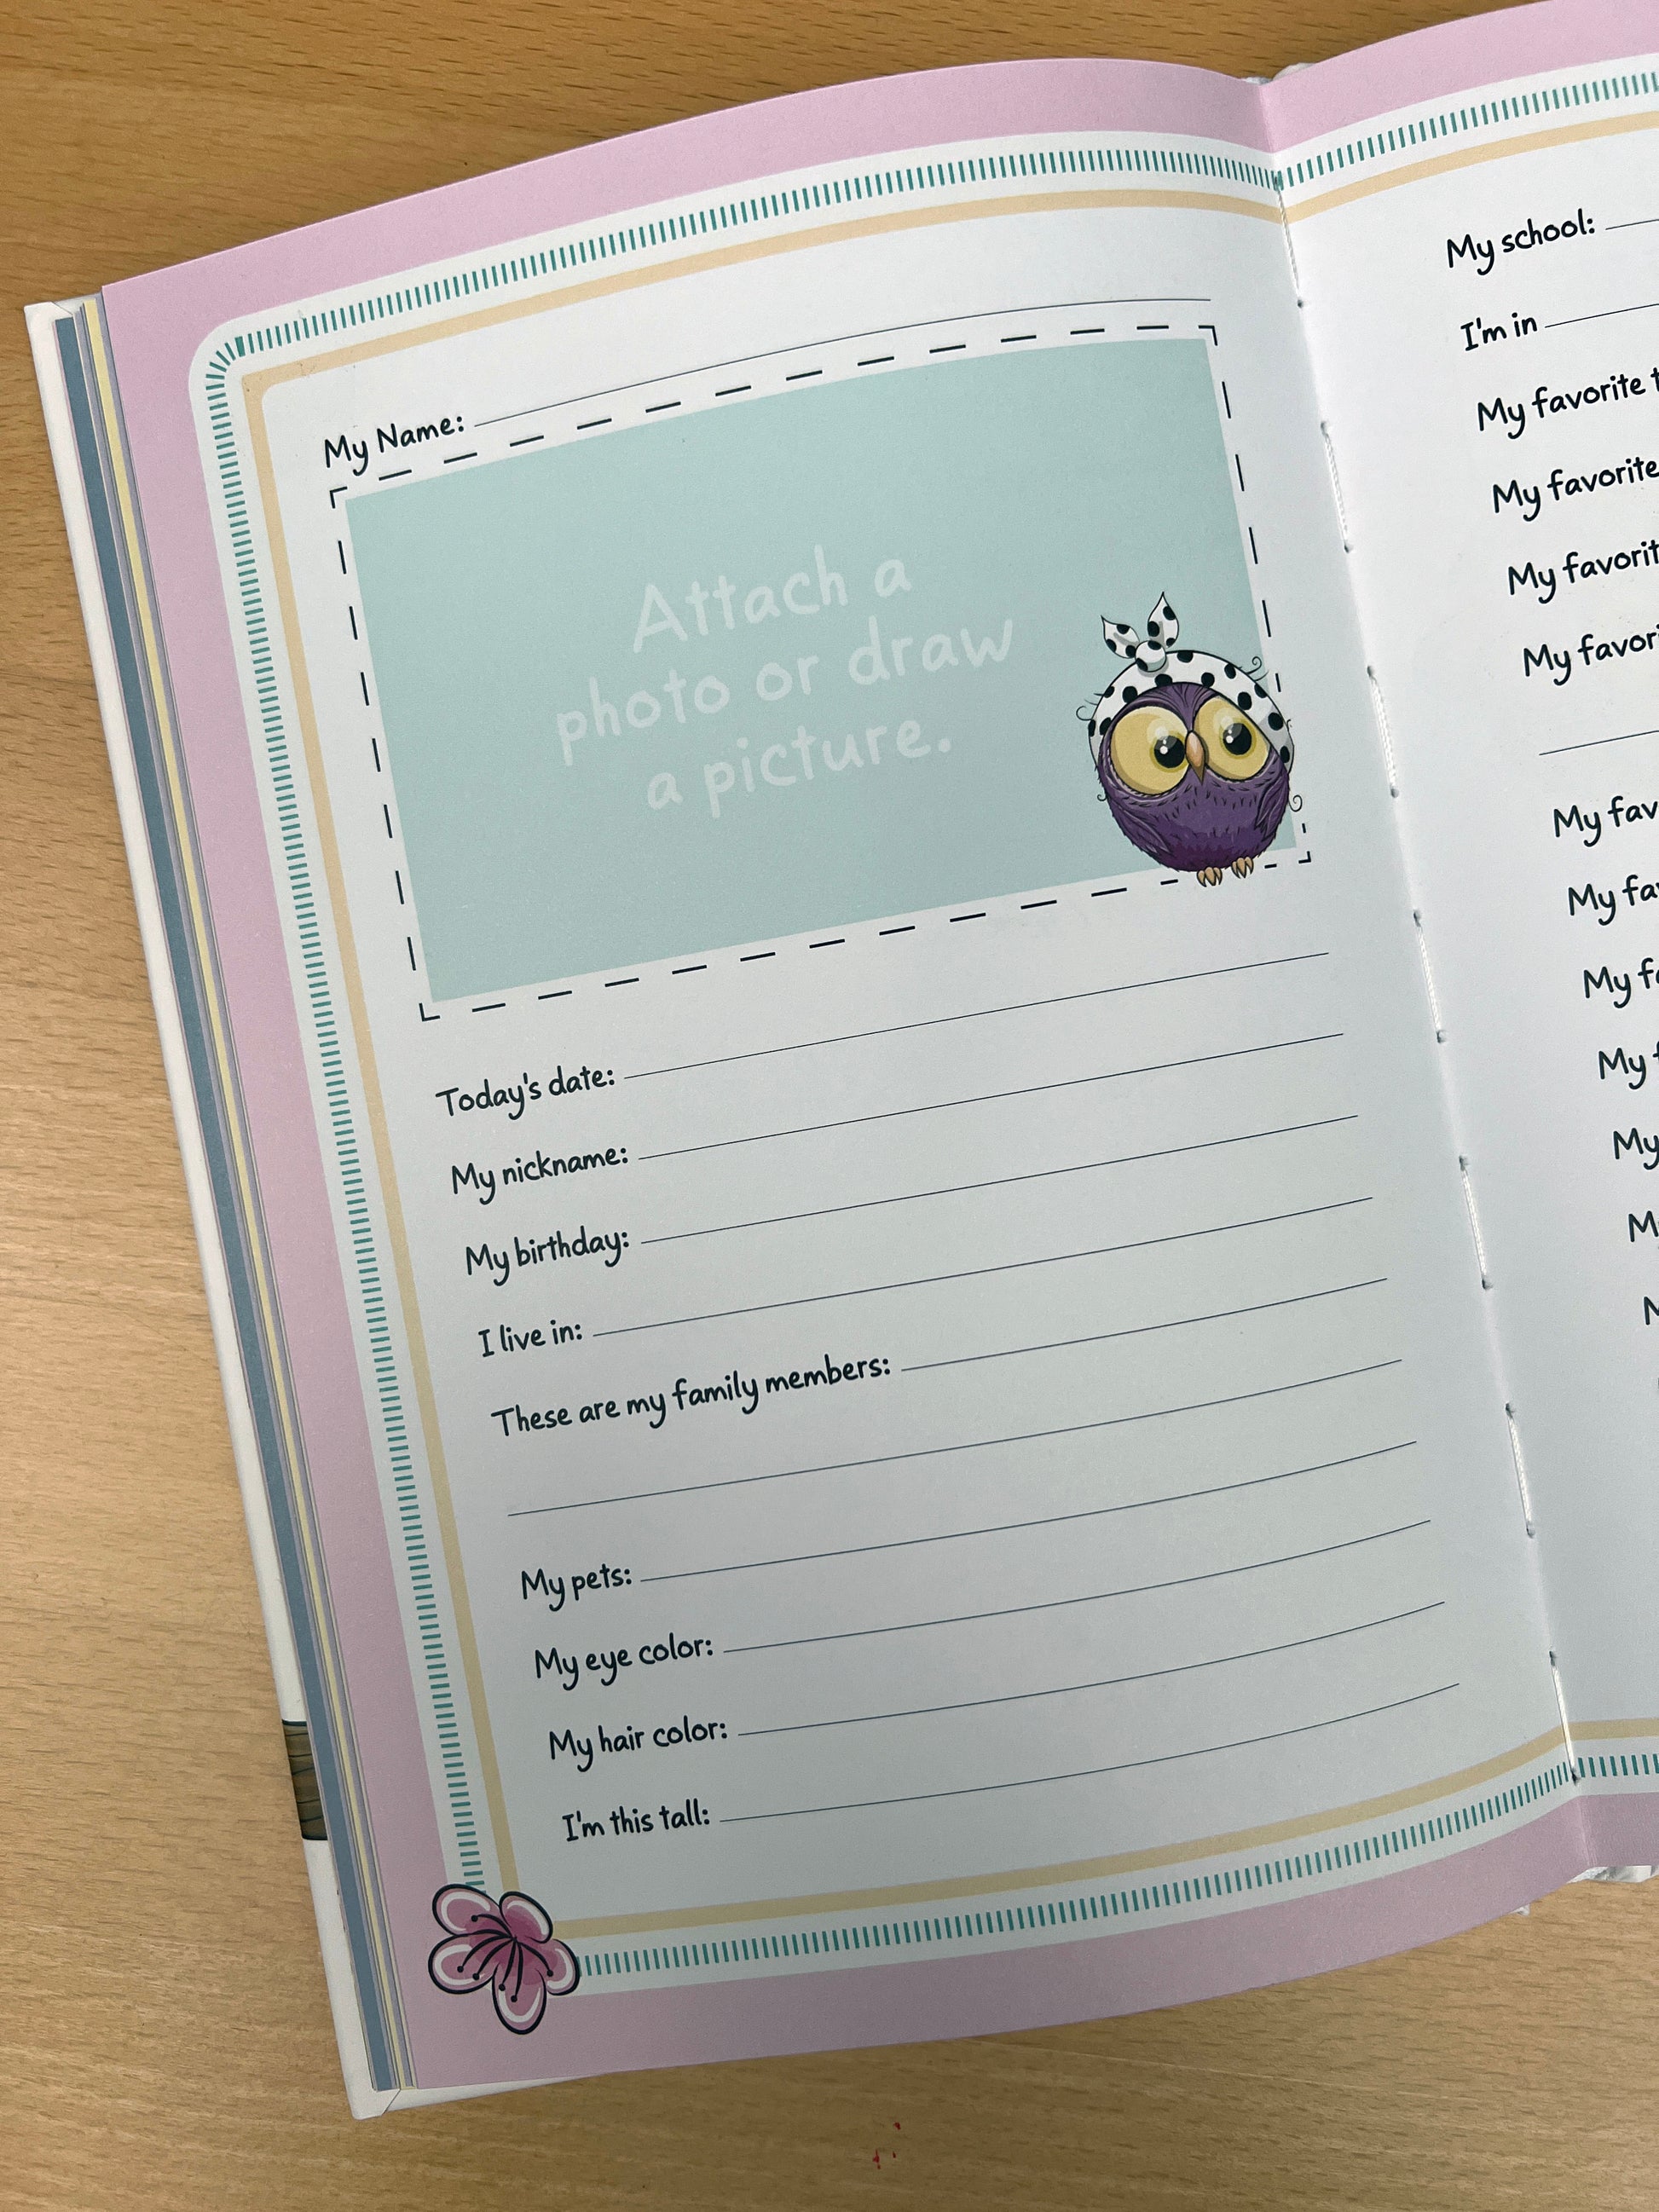 My Name:
Attach a
photo or draw
a picture.
Today's date:
My nickname:
My birthday:
I live in:
These are my family members:
My pets:
My eye color:
My hair color:
I'm this tall:
My school:
I'm in
My favorite
My favorite
My
My
My
My
My
My
My